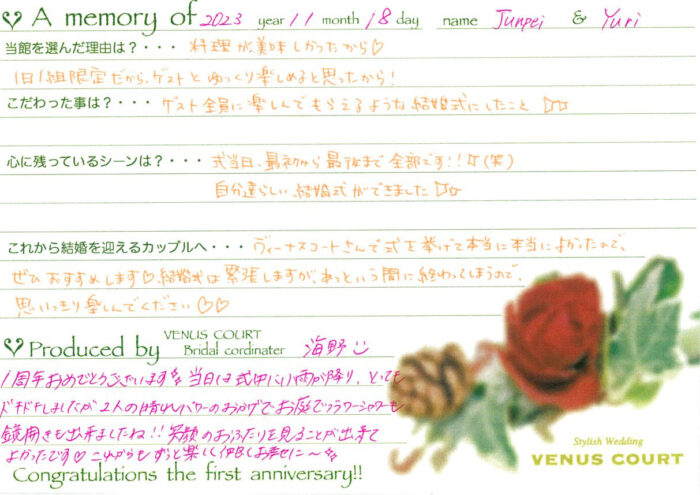 A memory of 2023 year 11 month 18 day name Junpei & Yuri
当館を選んだ理由は？・・・ 料理が美味しかったから♡
1日1組限定だから、ゲストとゆっくり楽しめると思ったから！
こだわった事は？・・・ ゲスト全員に楽しんでもらえるような結婚式にしたこと
心に残っているシーンは？・・・ 式当日、最初から最後まで全部です！！(笑)
自分達らしい結婚式ができました
これから結婚を迎えるカップルへ・・・ ヴィーナスコートさんで式を挙げて本当に本当によかったので、
ぜひおすすめします♡結婚式は緊張しますが、あっという間に終わってしまうので、
思いっきり楽しんでください♡♡
Produced by VENUS COURT
Bridal cordinater 海野
1周年おめでとうございます 当日は式中に雨が降り、とても
ドキドキしましたが2人の晴れパワーのおかげでお庭でフラワーシャワーも
鏡開きも出来ましたね!! 笑顔のおふたりを見ることが出来て
よかったです♡ これからもずっと楽しく仲良くお幸せに〜
Congratulations the first anniversary!!
Stylish Wedding
VENUS COURT